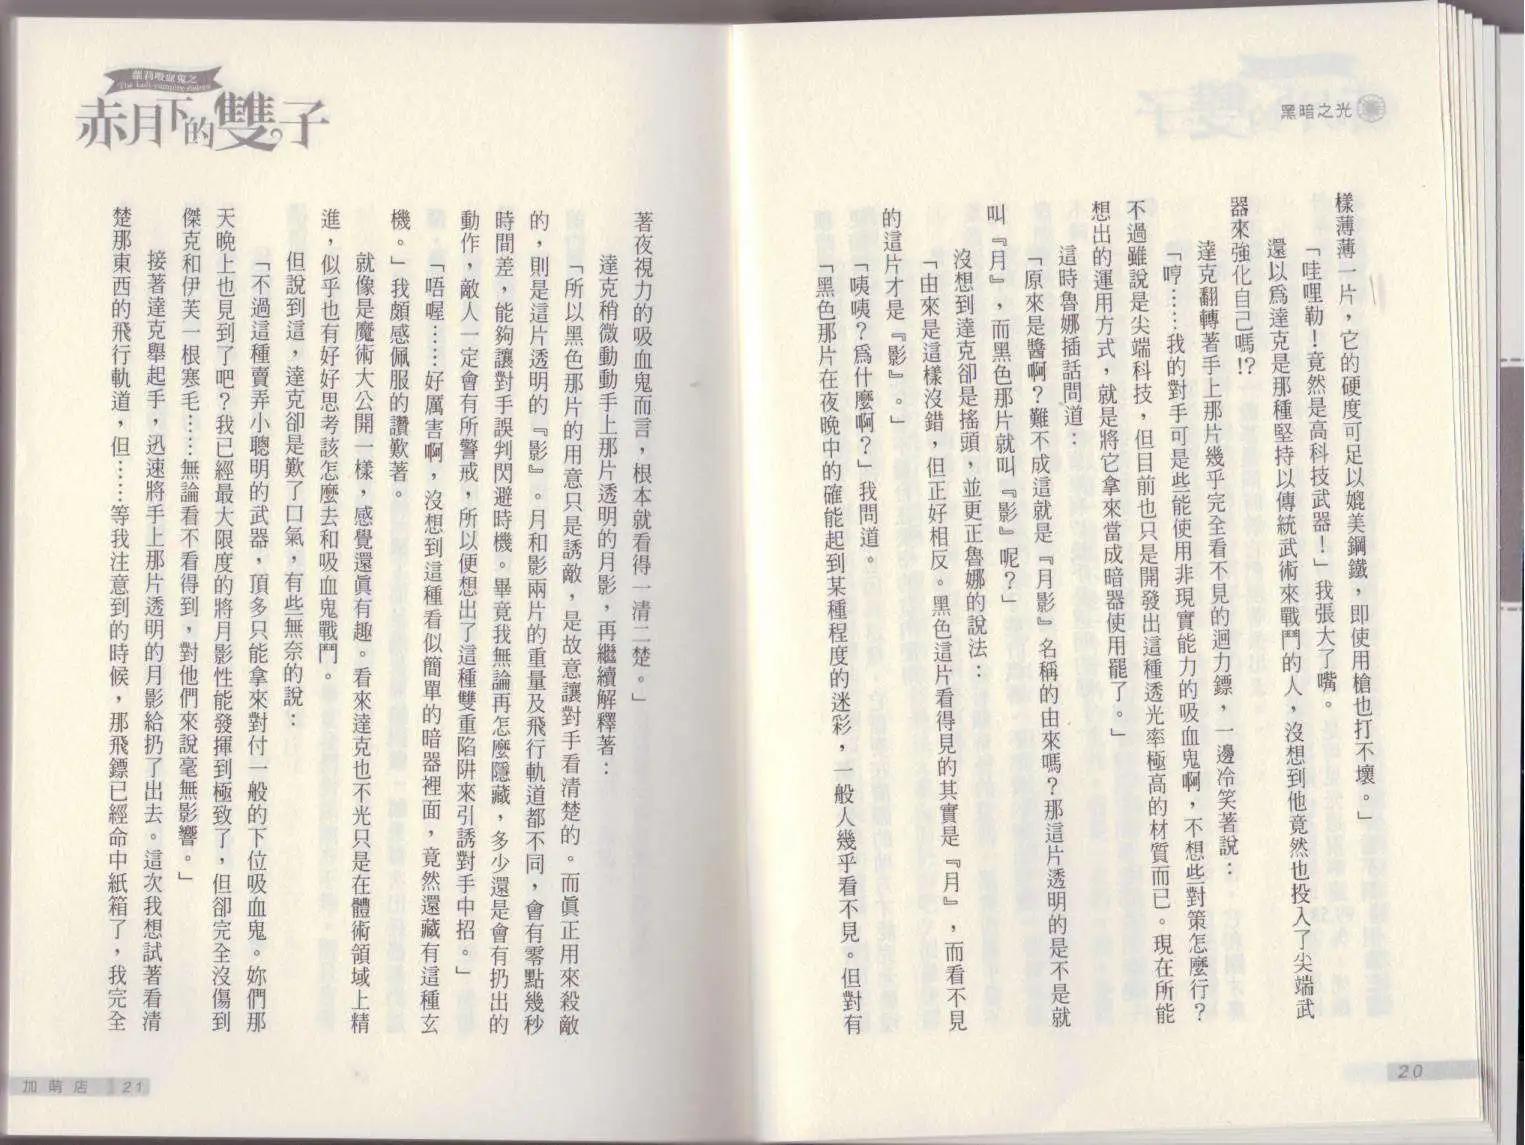 黑暗之光
樣薄薄一片，它的硬度可足以媲美鋼鐵，即使用槍也打不壞。」
「哇哩勒！竟然是高科技武器！」我張大了嘴。
還以為達克是那種堅持以傳統武術來戰鬥的人，沒想到他竟然也投入了尖端武
器來強化自己嗎!?
達克翻轉著手上那片幾乎完全看不見的迴力鏢，一邊冷笑著說：
「哼……我的對手可是些能使用非現實能力的吸血鬼啊，不想些對策怎麼行？
不過雖說是尖端科技，但目前也只是開發出這種透光率極高的材質而已。現在所能
想出的運用方式，就是將它拿來當成暗器使用罷了。」
這時魯娜插話問道：
「原來是醬啊？難不成這就是『月影』名稱的由來嗎？那這片透明的是不是就
叫『月』，而黑色那片就叫『影』呢？」
沒想到達克卻是搖頭，並更正魯娜的說法：
「由來是這樣沒錯，但正好相反。黑色這片看得見的其實是『月』，而看不見
的這片才是『影』。」
「咦咦？為什麼啊？」我問道。
「黑色那片在夜晚中的確能起到某種程度的迷彩，一般人幾乎看不見。但對有
20
蘿莉吸血鬼之
赤月下的雙子
著夜視力的吸血鬼而言，根本就看得一清二楚。」
達克稍微動動手上那片透明的月影，再繼續解釋著：
「所以黑色那片的用意只是誘敵，是故意讓對手看清楚的。而真正用來殺敵
的，則是這片透明的『影』。月和影兩片的重量及飛行軌道都不同，會有零點幾秒
時間差，能夠讓對手誤判閃避時機。畢竟我無論再怎麼隱藏，多少還是會有扔出的
動作，敵人一定會有所警戒，所以便想出了這種雙重陷阱來引誘對手中招。」
「唔喔……好厲害啊，沒想到這種看似簡單的暗器裡面，竟然還藏有這種玄
機。」我頗感佩服的讚歎著。
就像是魔術大公開一樣，感覺還真有趣。看來達克也不光只是在體術領域上精
進，似乎也有好好思考該怎麼去和吸血鬼戰鬥。
但說到這，達克卻是歎了口氣，有些無奈的說：
「不過這種賣弄小聰明的武器，頂多只能拿來對付一般的下位吸血鬼。妳們那
天晚上也見到了吧？我已經最大限度的將月影性能發揮到極致了，但卻完全沒傷到
傑克和伊芙一根寒毛……無論看不看得到，對他們來說毫無影響。」
接著達克舉起手，迅速將手上那片透明的月影給扔了出去。這次我想試著看清
楚那東西的飛行軌道，但……等我注意到的時候，那飛鏢已經命中紙箱了，我完全
加萌店 21